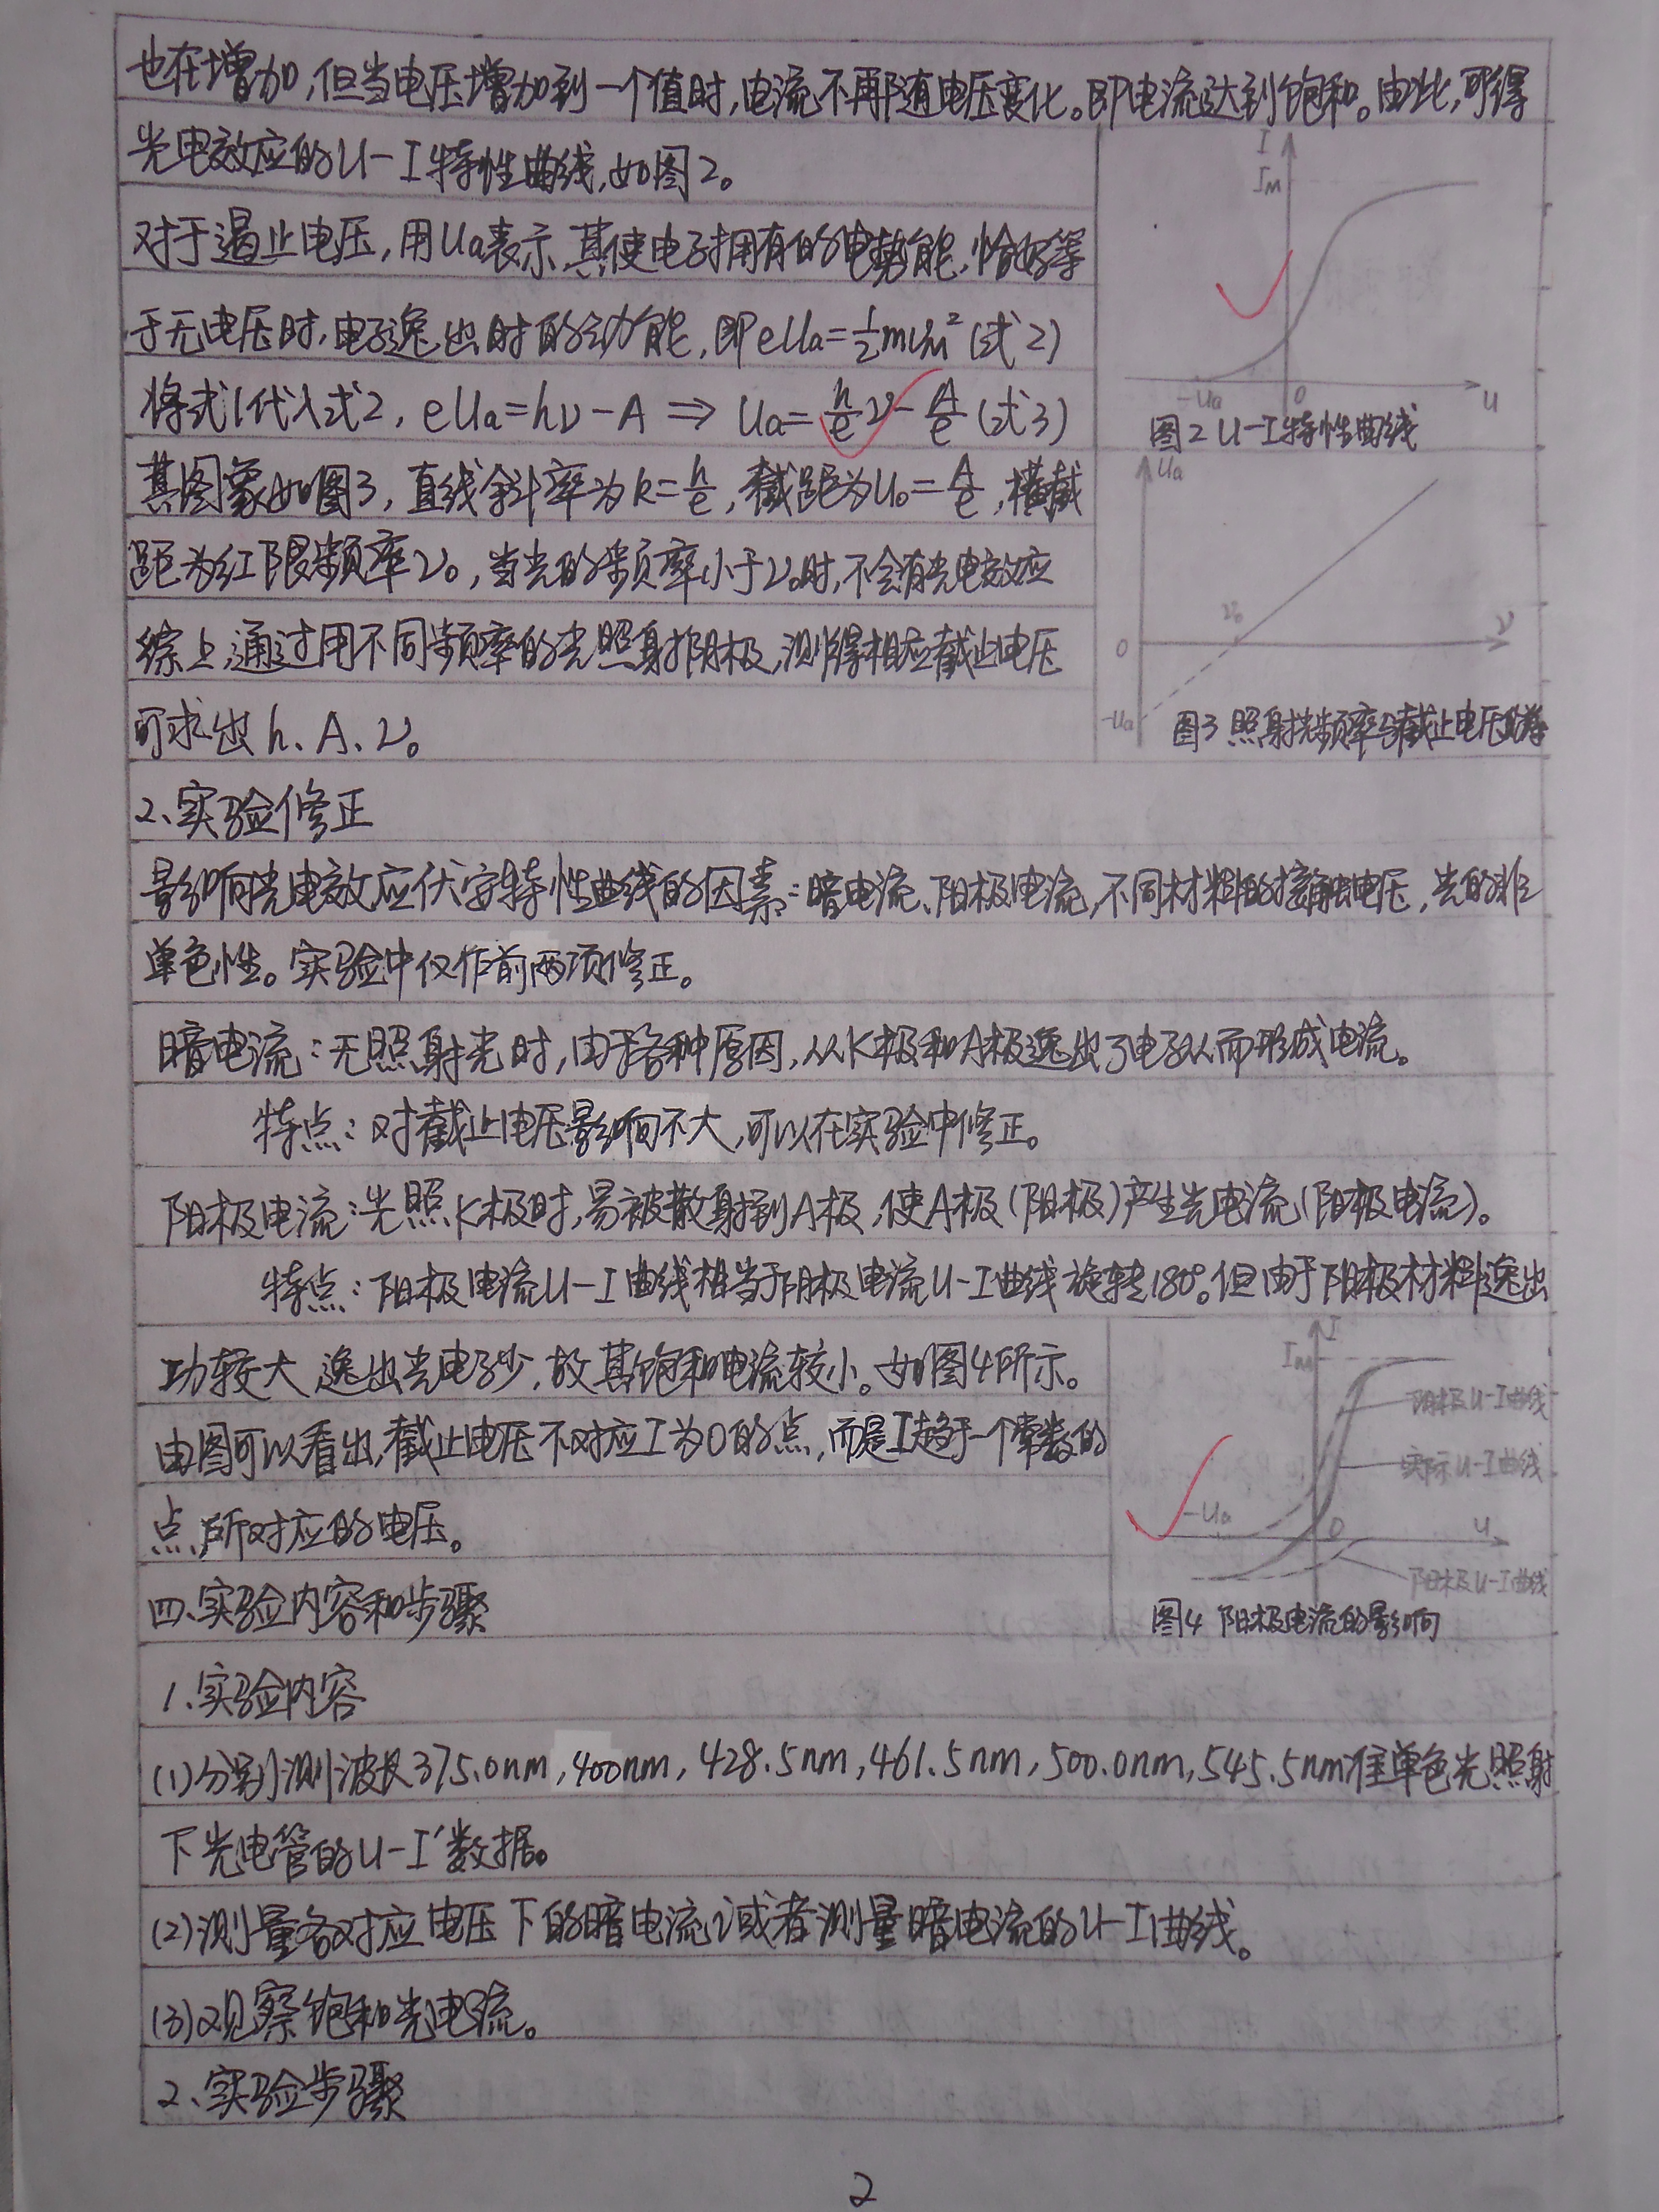 也在增加,但当电压增加到一个值时,电流不再随电压变化。即电流达到饱和。由此,可得
光电效应的U-I特性曲线,如图2。
对于遏止电压,用Ua表示,其使电子拥有的电势能,恰好等
于无电压时,电子逸出时的动能,即eUa=½mυ²м(式2)
将式1代入式2, eUa=hν-A ⇒ Ua=h/e ν-A/e (式3)
其图象如图3,直线斜率为k=h/e,截距为U₀=A/e,横截
距为红限频率ν₀,当光的频率小于ν₀时,不会有光电效应
综上,通过用不同频率的光照射阴极,测得相应截止电压
可求出h、A、ν₀
I
Iм
-Ua
0
U
图2 U-I特性曲线
Ua
ν₀
ν
0
-Ua
图3 照射光频率与截止电压
2、实验修正
影响光电效应伏安特性曲线的因素:暗电流、阳极电流,不同材料的接触电压,光的非
单色性。实验中仅作前两项修正。
暗电流:无照射光时,由于各种原因,从K极和A极逸出了电子从而形成电流。
特点:对截止电压影响不大,可以在实验中修正。
阳极电流:光照K极时,易被散射到A极,使A极(阳极)产生光电流(阳极电流)。
特点:阳极电流U-I曲线相当于阴极电流U-I曲线旋转180°。但由于阳极材料逸出
功较大,逸出光电子少,故其饱和电流较小。如图4所示。
由图可以看出,截止电压不对应I为0的点,而是I趋于一个常数的
点,所对应的电压。
I
Iм
阴极U-I曲线
实际U-I曲线
-Ua
0
U
阳极U-I曲线
图4 阳极电流的影响
四、实验内容和步骤
1、实验内容
(1)分别测波长375.0nm,400nm,428.5nm,461.5nm,500.0nm,545.5nm准单色光照射
下光电管的U-I'数据。
(2)测量各对应电压下的暗电流i或者测量暗电流的U-I曲线。
(3)观察饱和光电流。
2、实验步骤
2